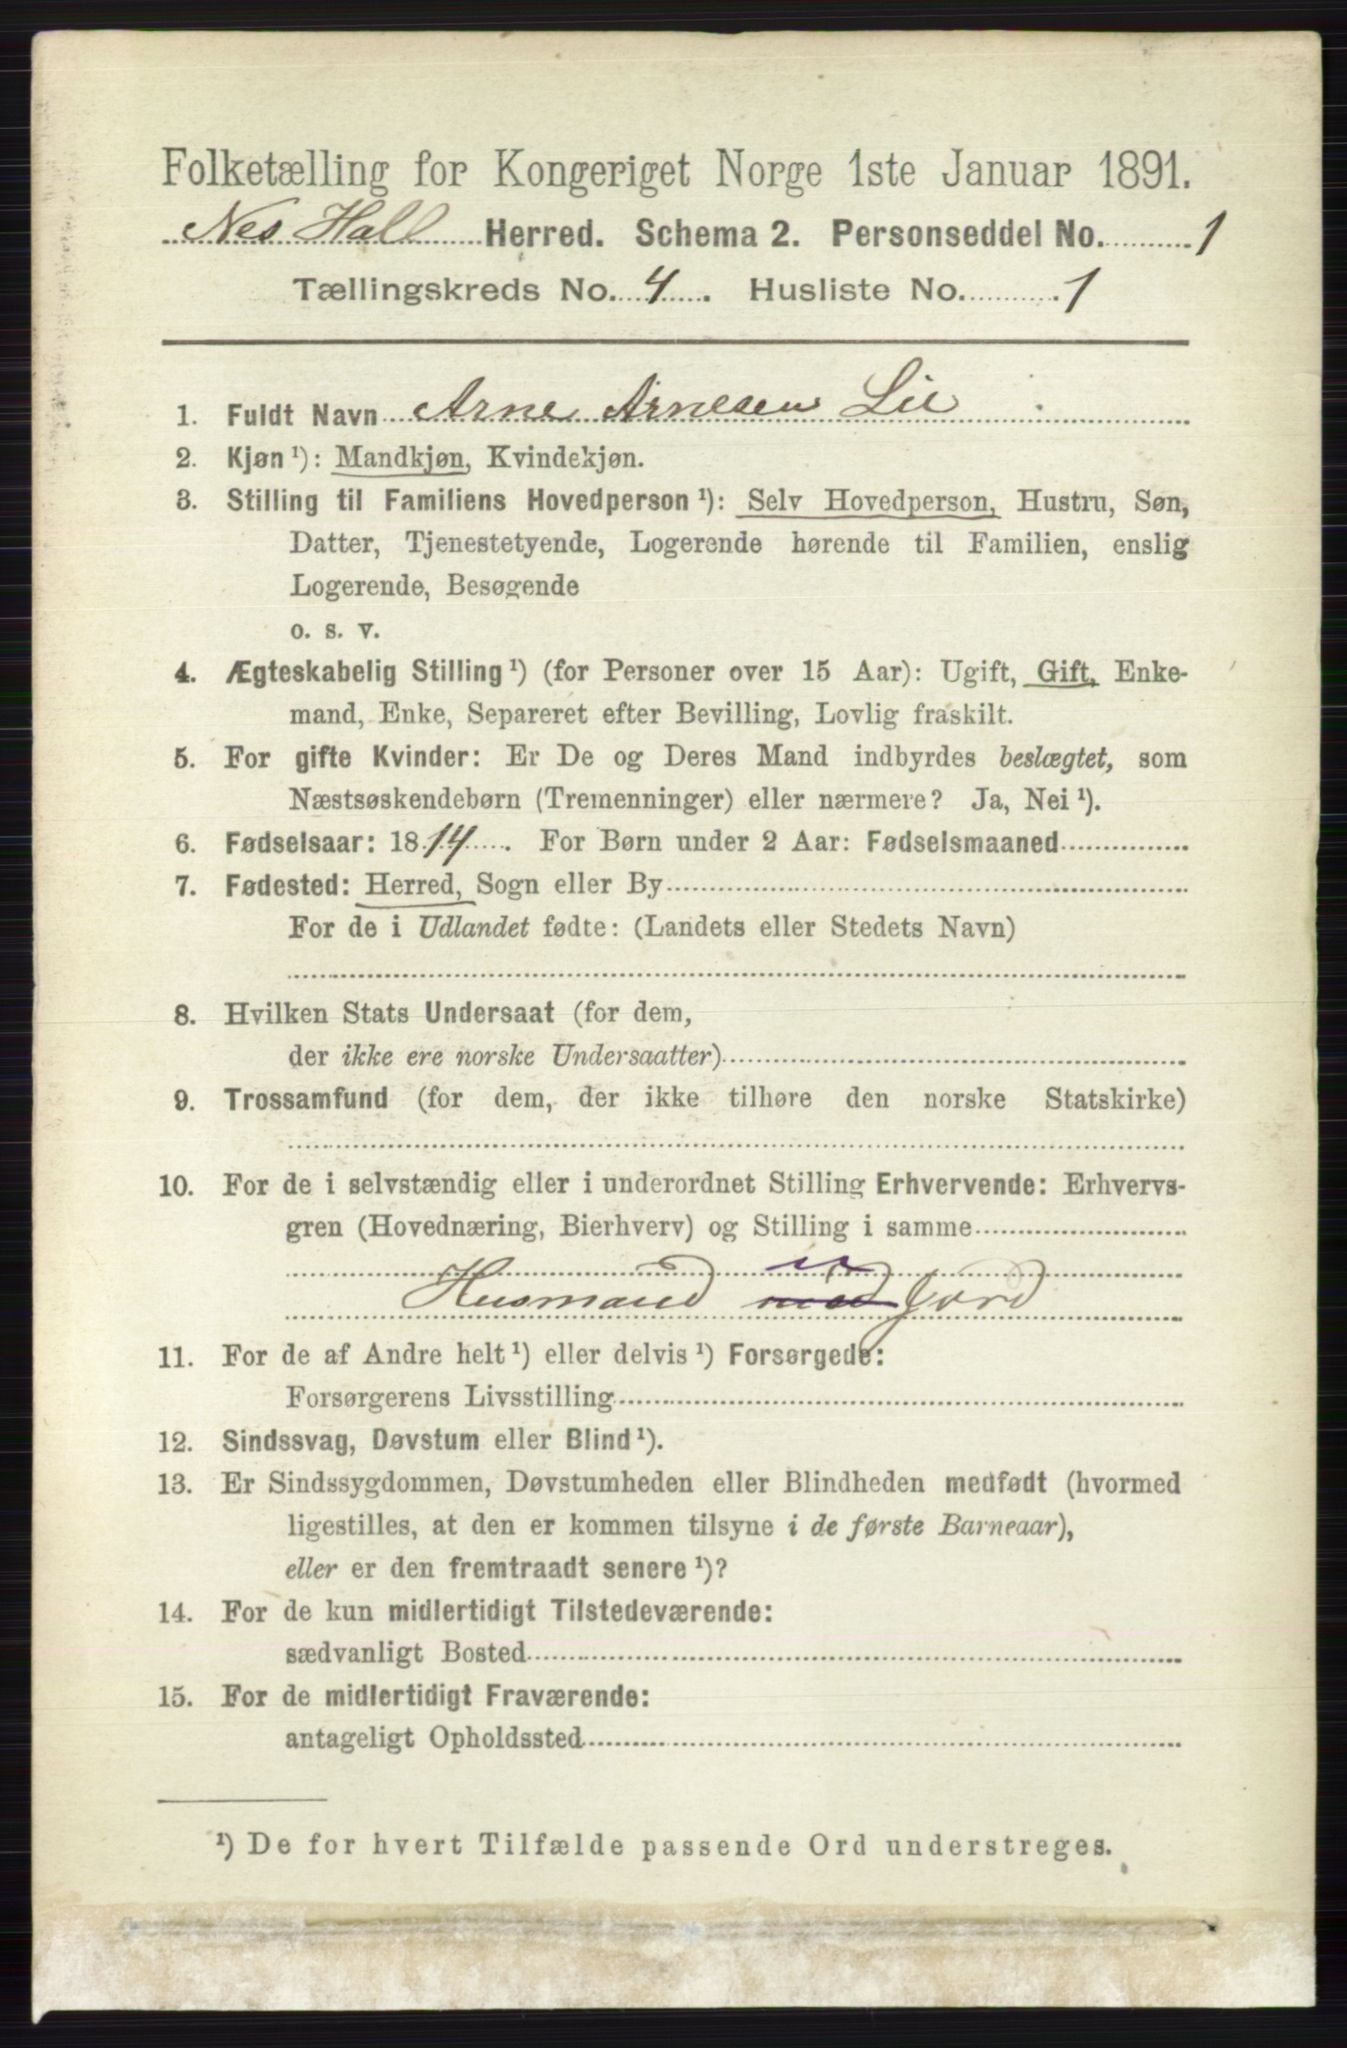 Folketælling for Kongeriget Norge 1ste Januar 1891.
Nes Hall Herred. Schema 2. Personseddel No. 1
Tællingskreds No. 4. Husliste No. 1
1. Fuldt Navn Arne Arnesen Lie
2. Kjøn ¹): Mandkjøn, Kvindekjøn.
3. Stilling til Familiens Hovedperson ¹): Selv Hovedperson, Hustru, Søn,
Datter, Tjenestetyende, Logerende hørende til Familien, enslig
Logerende, Besøgende
o. s. v.
4. Ægteskabelig Stilling ¹) (for Personer over 15 Aar): Ugift, Gift, Enke-
mand, Enke, Separeret efter Bevilling, Lovlig fraskilt.
5. For gifte Kvinder: Er De og Deres Mand indbyrdes beslægtet, som
Næstsøskendebørn (Tremenninger) eller nærmere? Ja, Nei ¹).
6. Fødselsaar: 1814. For Børn under 2 Aar: Fødselsmaaned
7. Fødested: Herred, Sogn eller By
For de i Udlandet fødte: (Landets eller Stedets Navn)
8. Hvilken Stats Undersaat (for dem,
der ikke ere norske Undersaatter)
9. Trossamfund (for dem, der ikke tilhøre den norske Statskirke)
10. For de i selvstændig eller i underordnet Stilling Erhvervende: Erhvervs-
gren (Hovednæring, Bierhverv) og Stilling i samme
Husmand med Jord
11. For de af Andre helt ¹) eller delvis ¹) Forsørgede:
Forsørgerens Livsstilling
12. Sindssvag, Døvstum eller Blind ¹).
13. Er Sindssygdommen, Døvstumheden eller Blindheden medfødt (hvormed
ligestilles, at den er kommen tilsyne i de første Barneaar),
eller er den fremtraadt senere ¹)?
14. For de kun midlertidigt Tilstedeværende:
sædvanligt Bosted
15. For de midlertidigt Fraværende:
antageligt Opholdssted
¹) De for hvert Tilfælde passende Ord understreges.